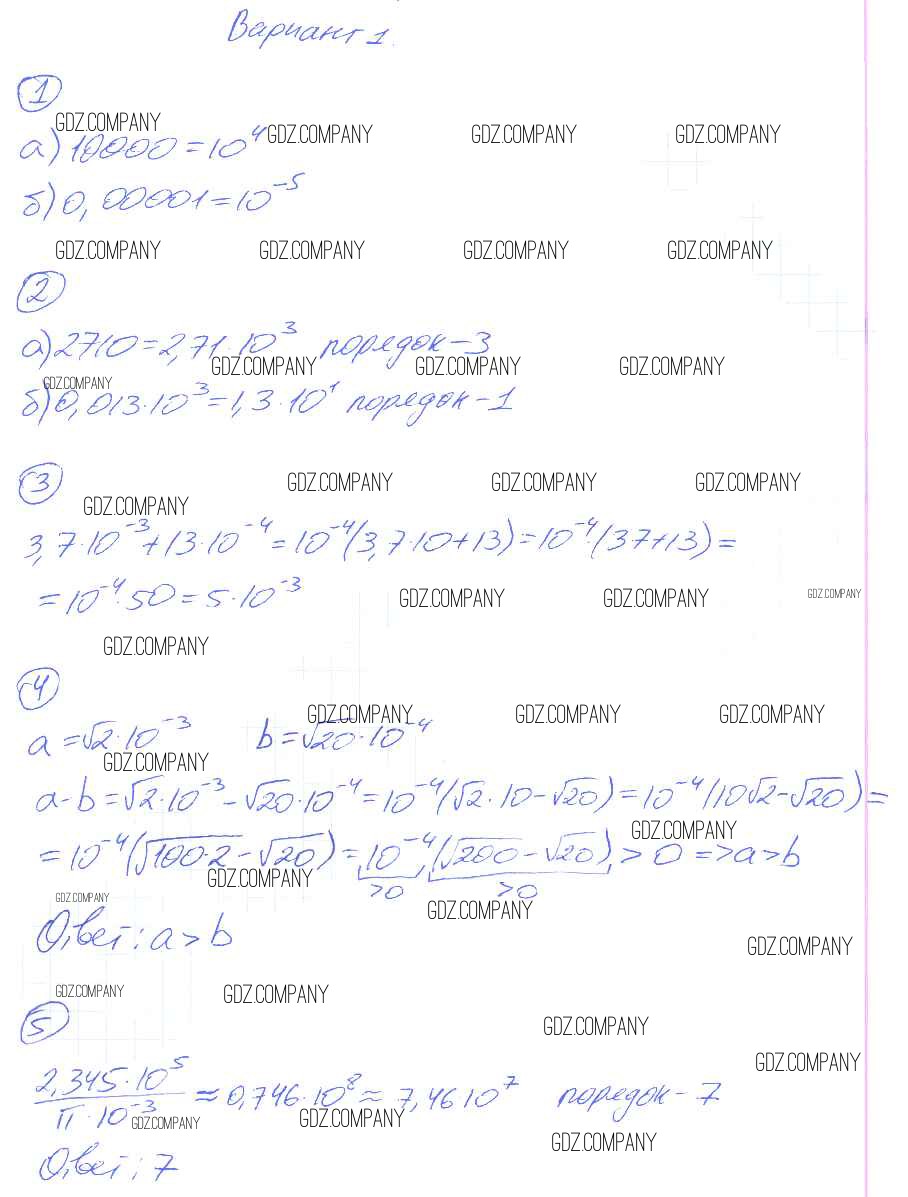 Вариант 1.
1
GDZ.COMPANY GDZ.COMPANY GDZ.COMPANY GDZ.COMPANY
а) 10000 = 10⁴
б) 0,00001 = 10⁻⁵
GDZ.COMPANY GDZ.COMPANY GDZ.COMPANY GDZ.COMPANY
2
а) 2710 = 2,71·10³ порядок - 3
GDZ.COMPANY GDZ.COMPANY GDZ.COMPANY
GDZ.COMPANY
б) 0,013·10³ = 1,3·10¹ порядок - 1
3
GDZ.COMPANY GDZ.COMPANY GDZ.COMPANY
GDZ.COMPANY
3,7·10⁻³ + 13·10⁻⁴ = 10⁻⁴(3,7·10+13) = 10⁻⁴·(37+13) =
= 10⁻⁴·50 = 5·10⁻³
GDZ.COMPANY GDZ.COMPANY GDZ.COMPANY
GDZ.COMPANY
4
GDZ.COMPANY GDZ.COMPANY GDZ.COMPANY
a = √2·10⁻³ b = √20·10⁻⁴
GDZ.COMPANY
a-b = √2·10⁻³ - √20·10⁻⁴ = 10⁻⁴(√2·10 - √20) = 10⁻⁴(10√2 - √20) =
GDZ.COMPANY
= 10⁻⁴(√100·2 - √20) = 10⁻⁴·(√200 - √20) > 0 => a > b
GDZ.COMPANY
>0 >0
GDZ.COMPANY
GDZ.COMPANY
Ответ: a > b
GDZ.COMPANY
GDZ.COMPANY GDZ.COMPANY
5
GDZ.COMPANY
GDZ.COMPANY
2,345·10⁵ / π·10⁻³ ≈ 0,746·10⁸ ≈ 7,46·10⁷ порядок - 7
GDZ.COMPANY GDZ.COMPANY
GDZ.COMPANY
Ответ: 7